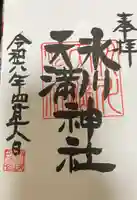 奉拝
氷川
天満
神社
令和八年四月六日